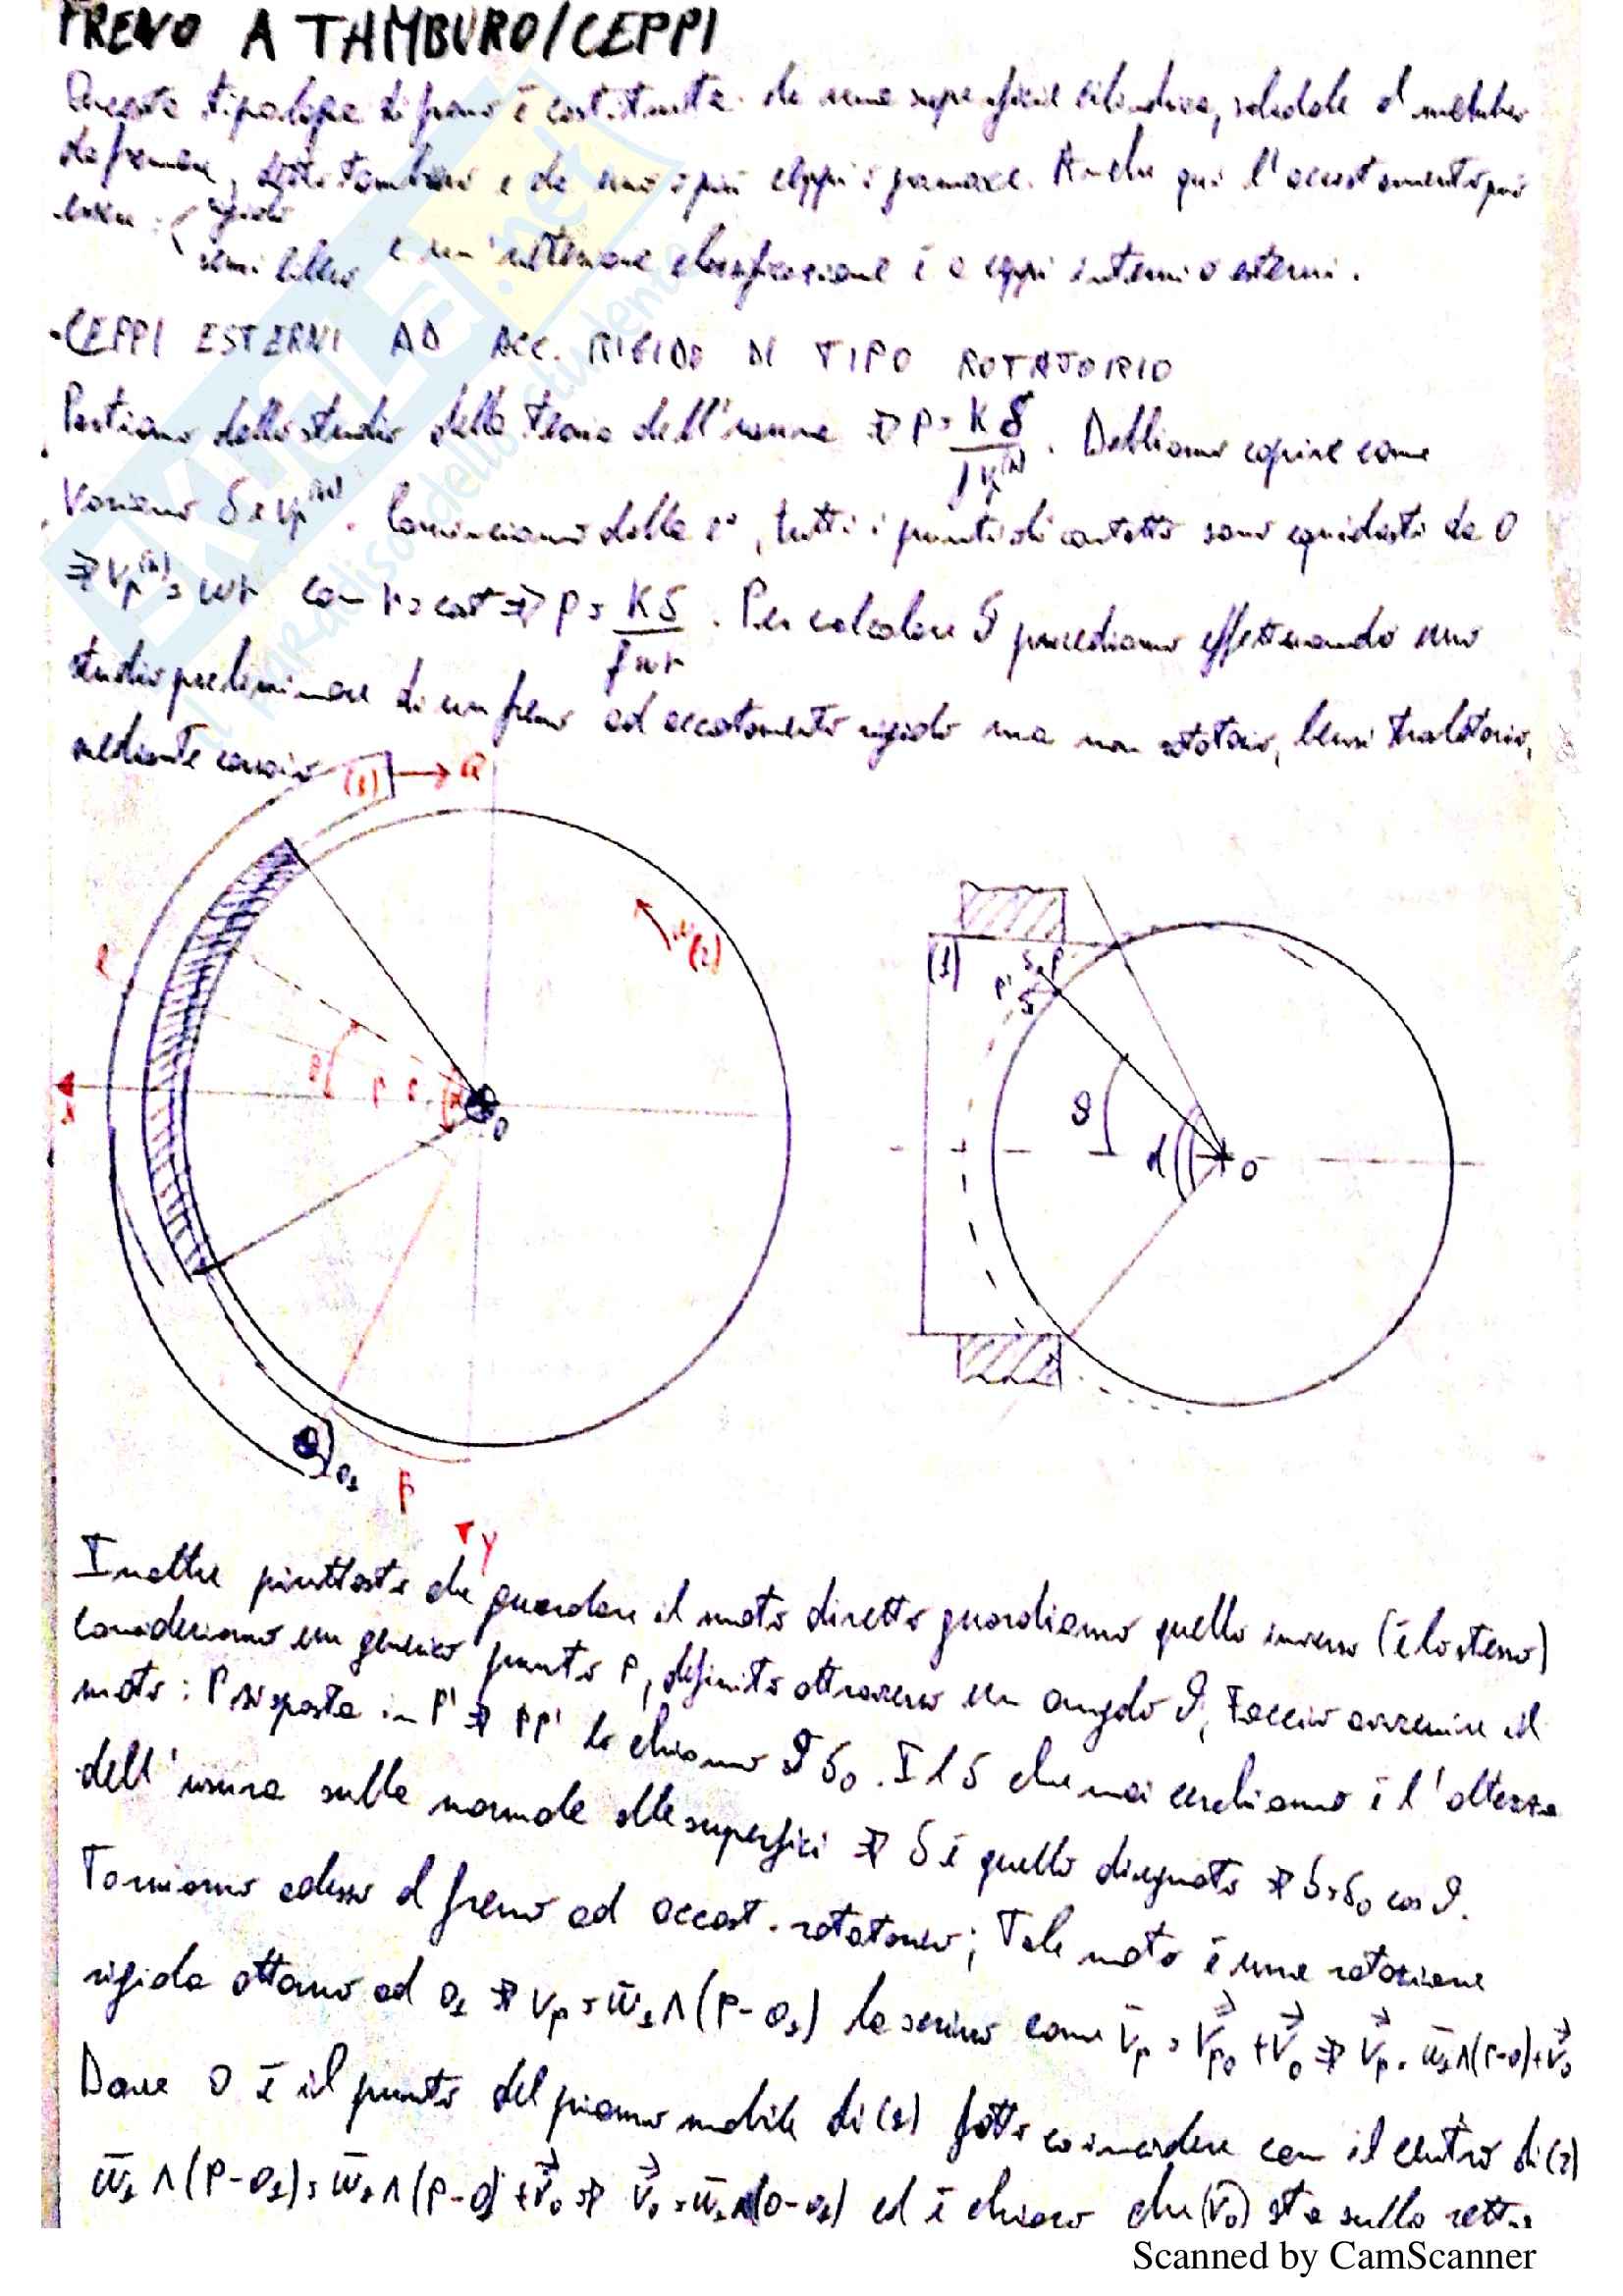 FRENO A TAMBURO/CEPPI
Questa tipologia di freno è costituita da una superficie cilindrica, solidale al membro
da frenare, detto tamburo e da uno o più ceppi o ganasce. Anche qui l'accostamento può
essere: { rigido
semi libero e un'ulteriore classificazione è a ceppi interni o esterni.
-CEPPI ESTERNI AD ACC. RIGIDO DI TIPO ROTATORIO
Partiamo dallo studio della teoria dell'usura ⇒ p = Kδ / f Vp^(r). Dobbiamo capire come
variano δ e Vp^(r). Cominciamo dalla 2ª, tutti i punti di contatto sono equidistanti da O
⇒ Vp^(r) = ωr con r = cost ⇒ p = Kδ / fωr. Per calcolare δ procediamo effettuando uno
studio preliminare di un freno ad accostamento rigido ma non rotatorio, bensì traslatorio,
mediante corsoio
(1) → Q
ω (2)
l
θ ρ r α
x
O
O1
β
y
(1) δ0 P
P' δ
ϑ
α O
Inoltre piuttosto che guardare il moto diretto guardiamo quello inverso (è lo stesso)
consideriamo un generico punto P, definito attraverso un angolo ϑ, Faccio avvenire il
moto: P si sposta in P' ⇒ PP' lo chiamo δ0. Il δ che noi cerchiamo è l'altezza
dell'usura sulla normale alle superfici ⇒ δ è quello disegnato ⇒ δ = δ0 cos ϑ.
Torniamo adesso al freno ad accost. rotatorio; Tale moto è una rotazione
rigida attorno ad O1 ⇒ Vp = ω1 ∧ (P-O1) lo scrivo come Vp = Vpo + Vo ⇒ Vp = ω1 ∧ (P-O) + Vo
Dove O è il punto del piano mobile di (1) fatto coincidere con il centro di (2)
ω1 ∧ (P-O1) = ω1 ∧ (P-O) + Vo ⇒ Vo = ω1 ∧ (O-O1) ed è chiaro che (Vo) sta sulla retta
Scanned by CamScanner
SKUOLA.net
il paradiso dello studente